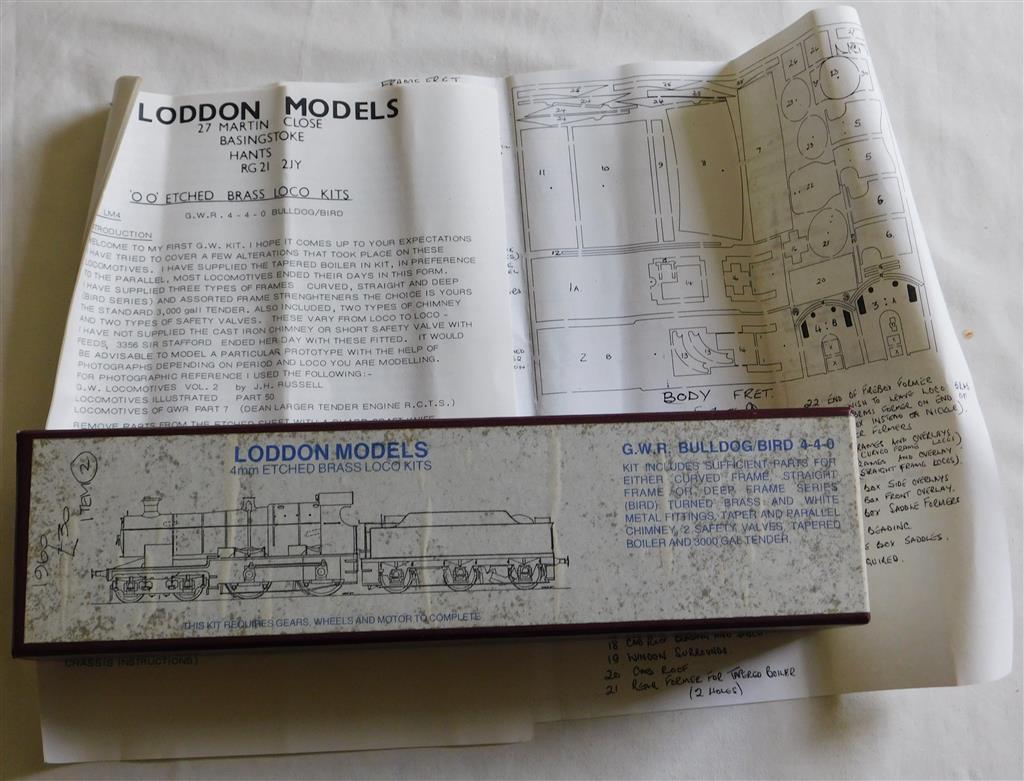 FRAME FRET.
LODDON MODELS
27 MARTIN CLOSE
BASINGSTOKE
HANTS
RG21 2JY
'OO' ETCHED BRASS LOCO KITS
LM4
G.W.R. 4-4-0 BULLDOG/BIRD
TRODUCTION
ELCOME TO MY FIRST G.W. KIT. I HOPE IT COMES UP TO YOUR EXPECTATIONS
HAVE TRIED TO COVER A FEW ALTERATIONS THAT TOOK PLACE ON THESE
LOCOMOTIVES. I HAVE SUPPLIED THE TAPERED BOILER IN KIT, IN PREFERENCE
TO THE PARALLEL, MOST LOCOMOTIVES ENDED THEIR DAYS IN THIS FORM.
I HAVE SUPPLIED THREE TYPES OF FRAMES CURVED, STRAIGHT AND DEEP
(BIRD SERIES) AND ASSORTED FRAME STRENGHTENERS THE CHOICE IS YOURS
THE STANDARD 3,000 gall TENDER. ALSO INCLUDED, TWO TYPES OF CHIMNEY
AND TWO TYPES OF SAFETY VALVES. THESE VARY FROM LOCO TO LOCO -
I HAVE NOT SUPPLIED THE CAST IRON CHIMNEY OR SHORT SAFETY VALVE WITH
FEEDS, 3356 SIR STAFFORD ENDED HER DAY WITH THESE FITTED. IT WOULD
BE ADVISABLE TO MODEL A PARTICULAR PROTOTYPE WITH THE HELP OF
PHOTOGRAPHS DEPENDING ON PERIOD AND LOCO YOU ARE MODELLING.
FOR PHOTOGRAPHIC REFERENCE I USED THE FOLLOWING:-
G.W. LOCOMOTIVES VOL. 2 by J.H. RUSSELL
LOCOMOTIVES ILLUSTRATED PART 50
LOCOMOTIVES OF GWR PART 7 (DEAN LARGER TENDER ENGINE R.C.T.S.)
REMOVE PARTS FROM THE ETCHED SHEET WITH A
11
10
9
8
7
5
5
6
6
12
1A
20
21
2 B
13
13
4 B
3 A
BODY FRET.
22 END OF FIREBOX FORMER
INSTEAD OF NICKLE).
FORMERS
FRAMES AND OVERLAYS
CURVED FRAME LOCOS)
FRAMES AND OVERLAY
STRAIGHT FRAME LOCOS).
BOX SIDE OVERLAYS
BOX FRONT OVERLAY.
BOX SADDLE FORMERS
BEADING
BOX SADDLES.
QUIRED.
LODDON MODELS
4mm ETCHED BRASS LOCO KITS
ITEM 2
G.W.R. BULLDOG/BIRD 4-4-0
KIT INCLUDES SUFFICIENT PARTS FOR
EITHER CURVED FRAME, STRAIGHT
FRAME OR DEEP FRAME SERIES
(BIRD) TURNED BRASS AND WHITE
METAL FITTINGS, TAPER AND PARALLEL
CHIMNEY, 2 SAFETY VALVES, TAPERED
BOILER AND 3000 GAL TENDER.
THIS KIT REQUIRES GEARS, WHEELS AND MOTOR TO COMPLETE
CHASSIS INSTRUCTIONS)
19 WINDOW SURROUNDS.
20 CAB ROOF
21 REAR FORMER FOR TAPERED BOILER
(2 HOLES)